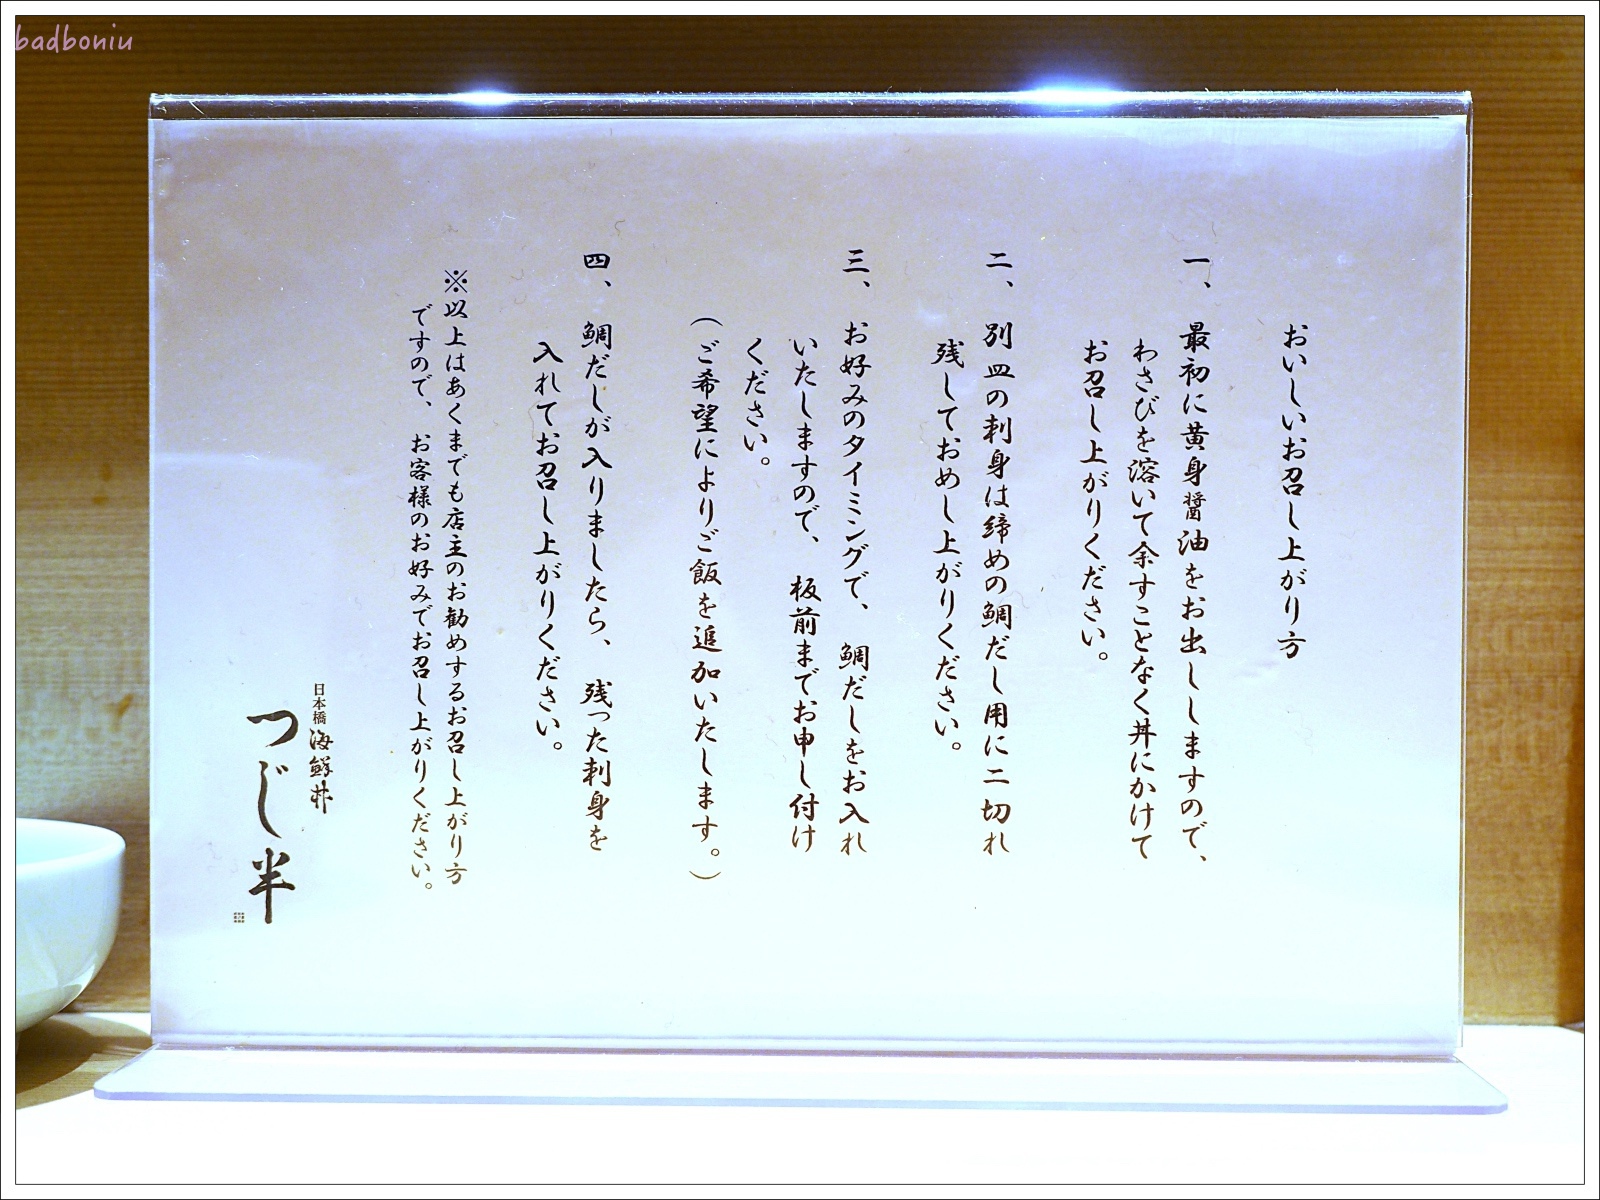 badboniu
おいしいお召し上がり方
一、最初に黄身醤油をお出ししますので、
わさびを溶いて余すことなく丼にかけて
お召し上がりください。
二、別皿の刺身は締めの鯛だし用に二切れ
残しておめし上がりください。
三、お好みのタイミングで、鯛だしをお入れ
いたしますので、板前までお申し付け
ください。
（ご希望によりご飯を追加いたします。）
四、鯛だしが入りましたら、残った刺身を
入れてお召し上がりください。
※以上はあくまでも店主のお勧めするお召し上がり方
ですので、お客様のお好みでお召し上がりください。
日本橋海鮮丼
つじ半